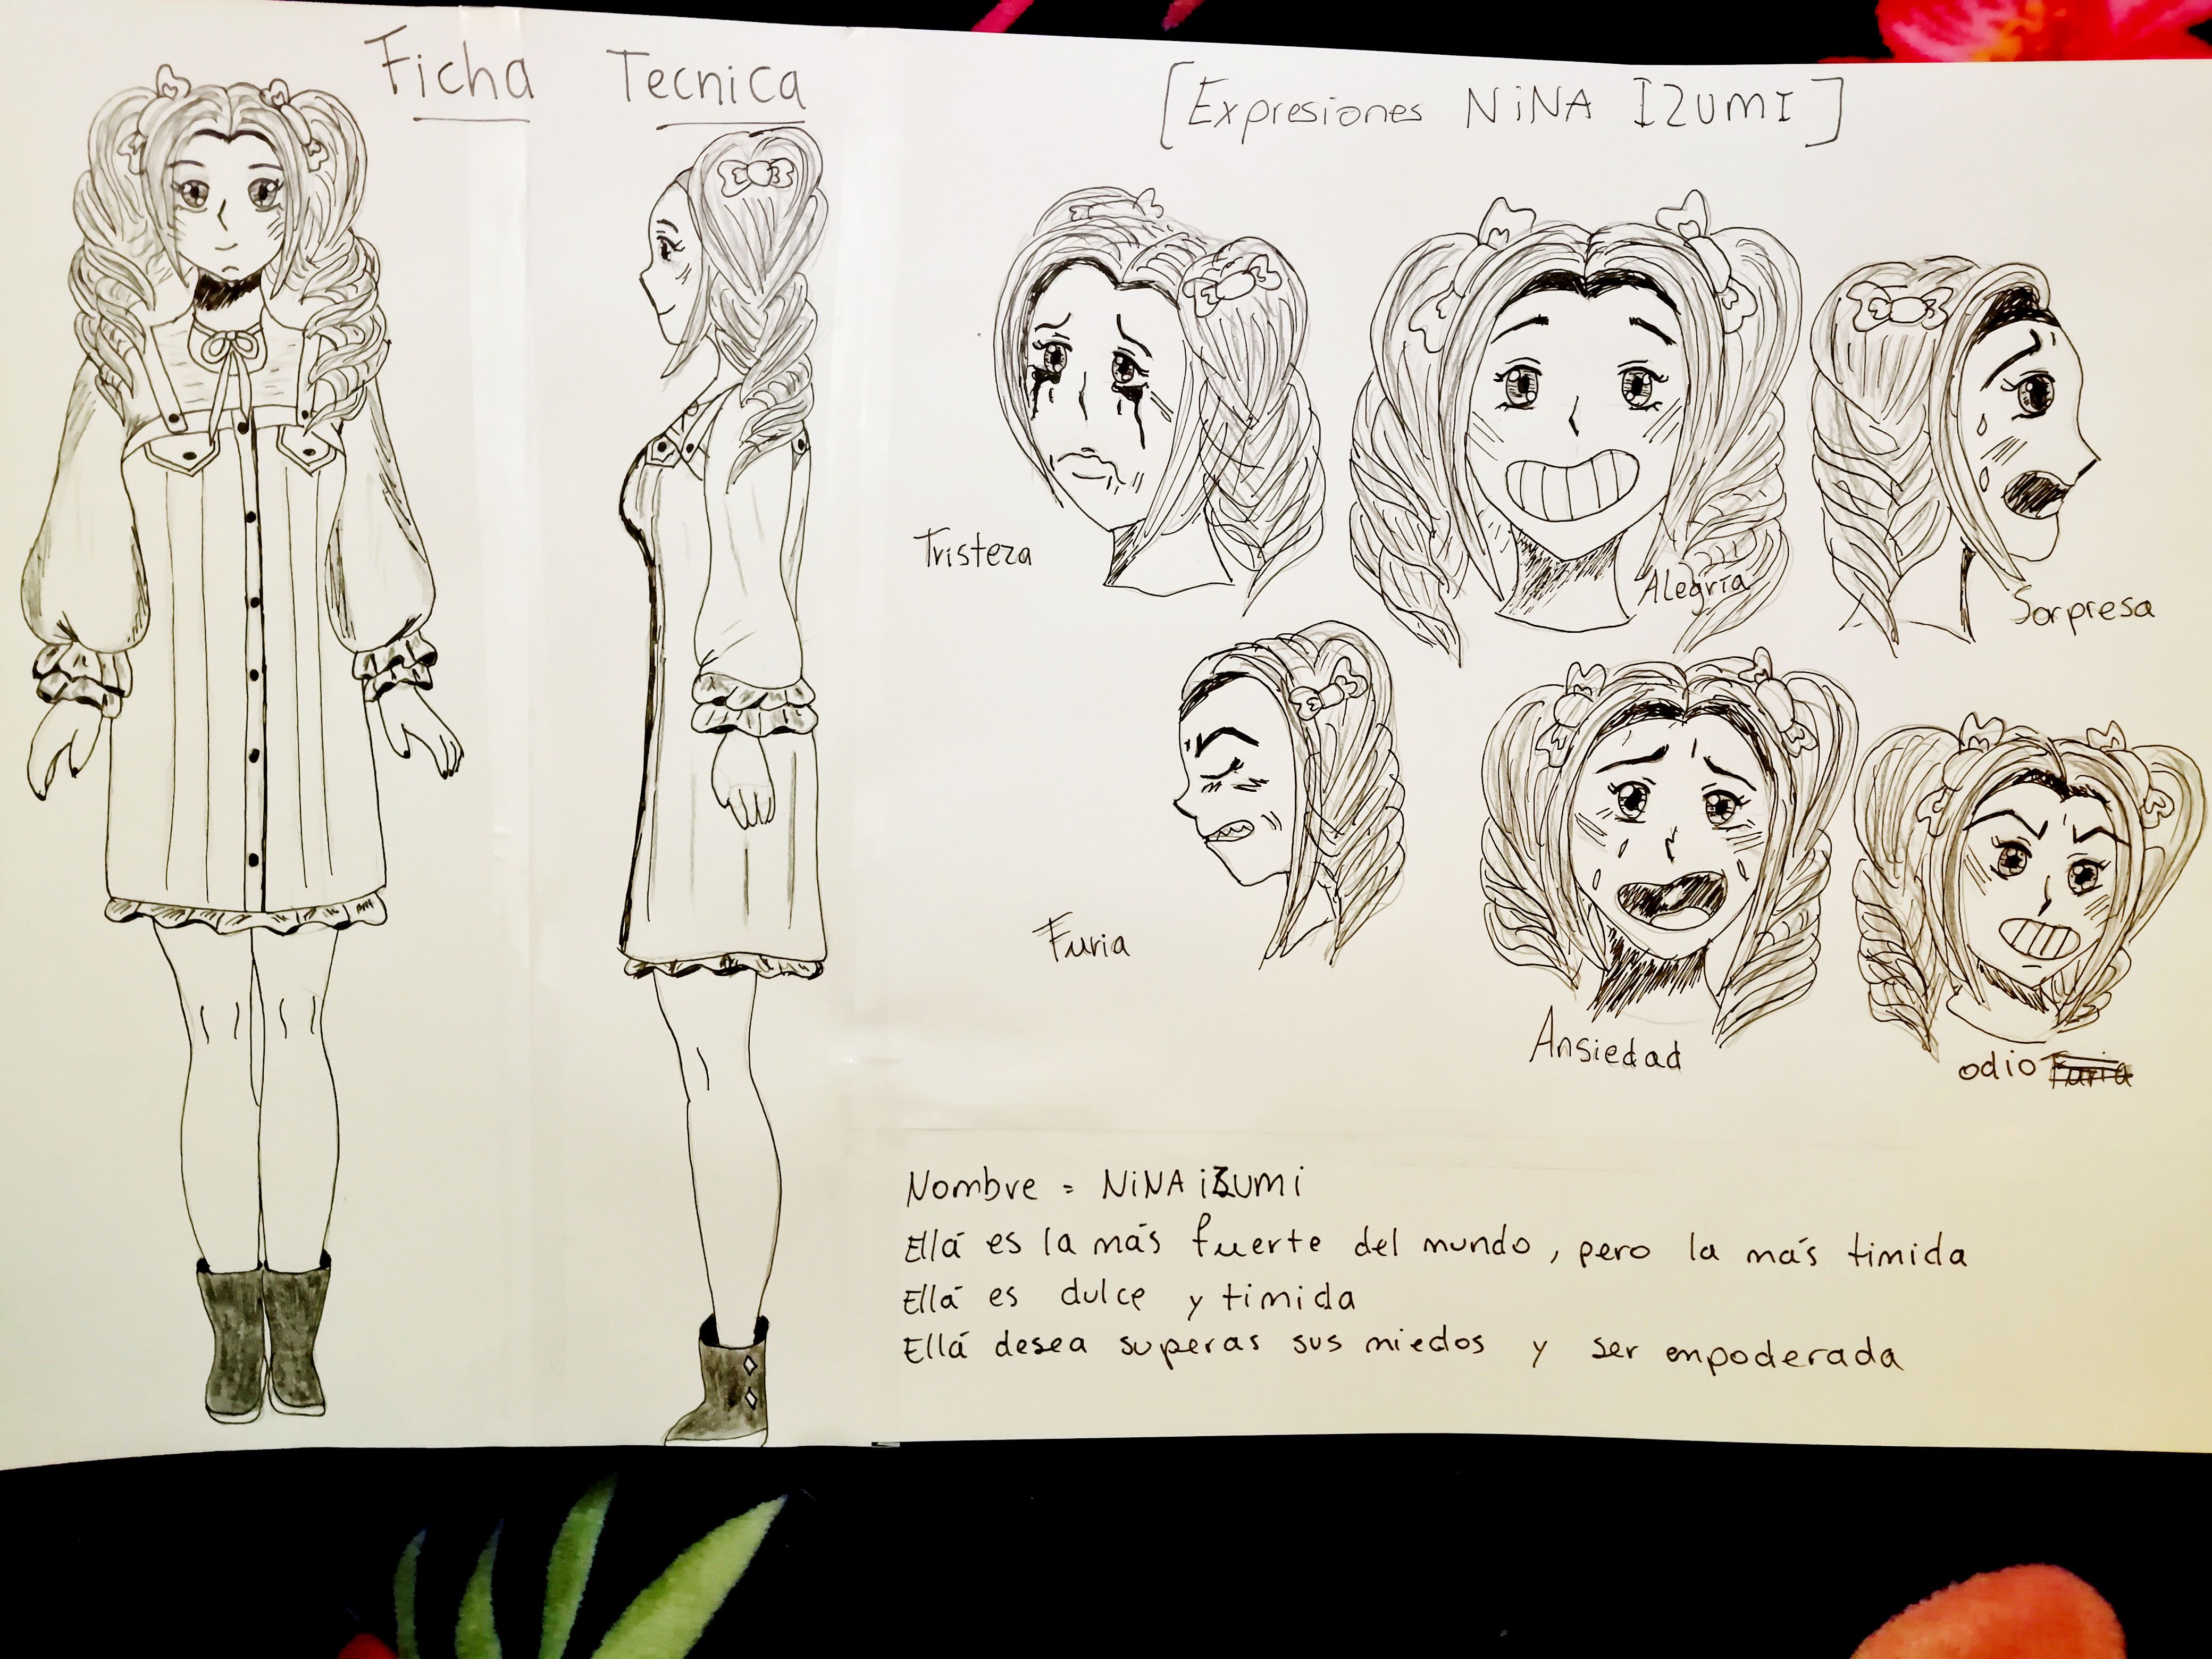 Ficha Tecnica
[Expresiones NiNA IZUMI]
Tristeza
Alegría
Sorpresa
Furia
Ansiedad
odio Furia
Nombre = NiNA iZUMi
Ellá es la más fuerte del mundo, pero la más timida
Ellá es dulce y timida
Ellá desea superas sus miedos y ser empoderada